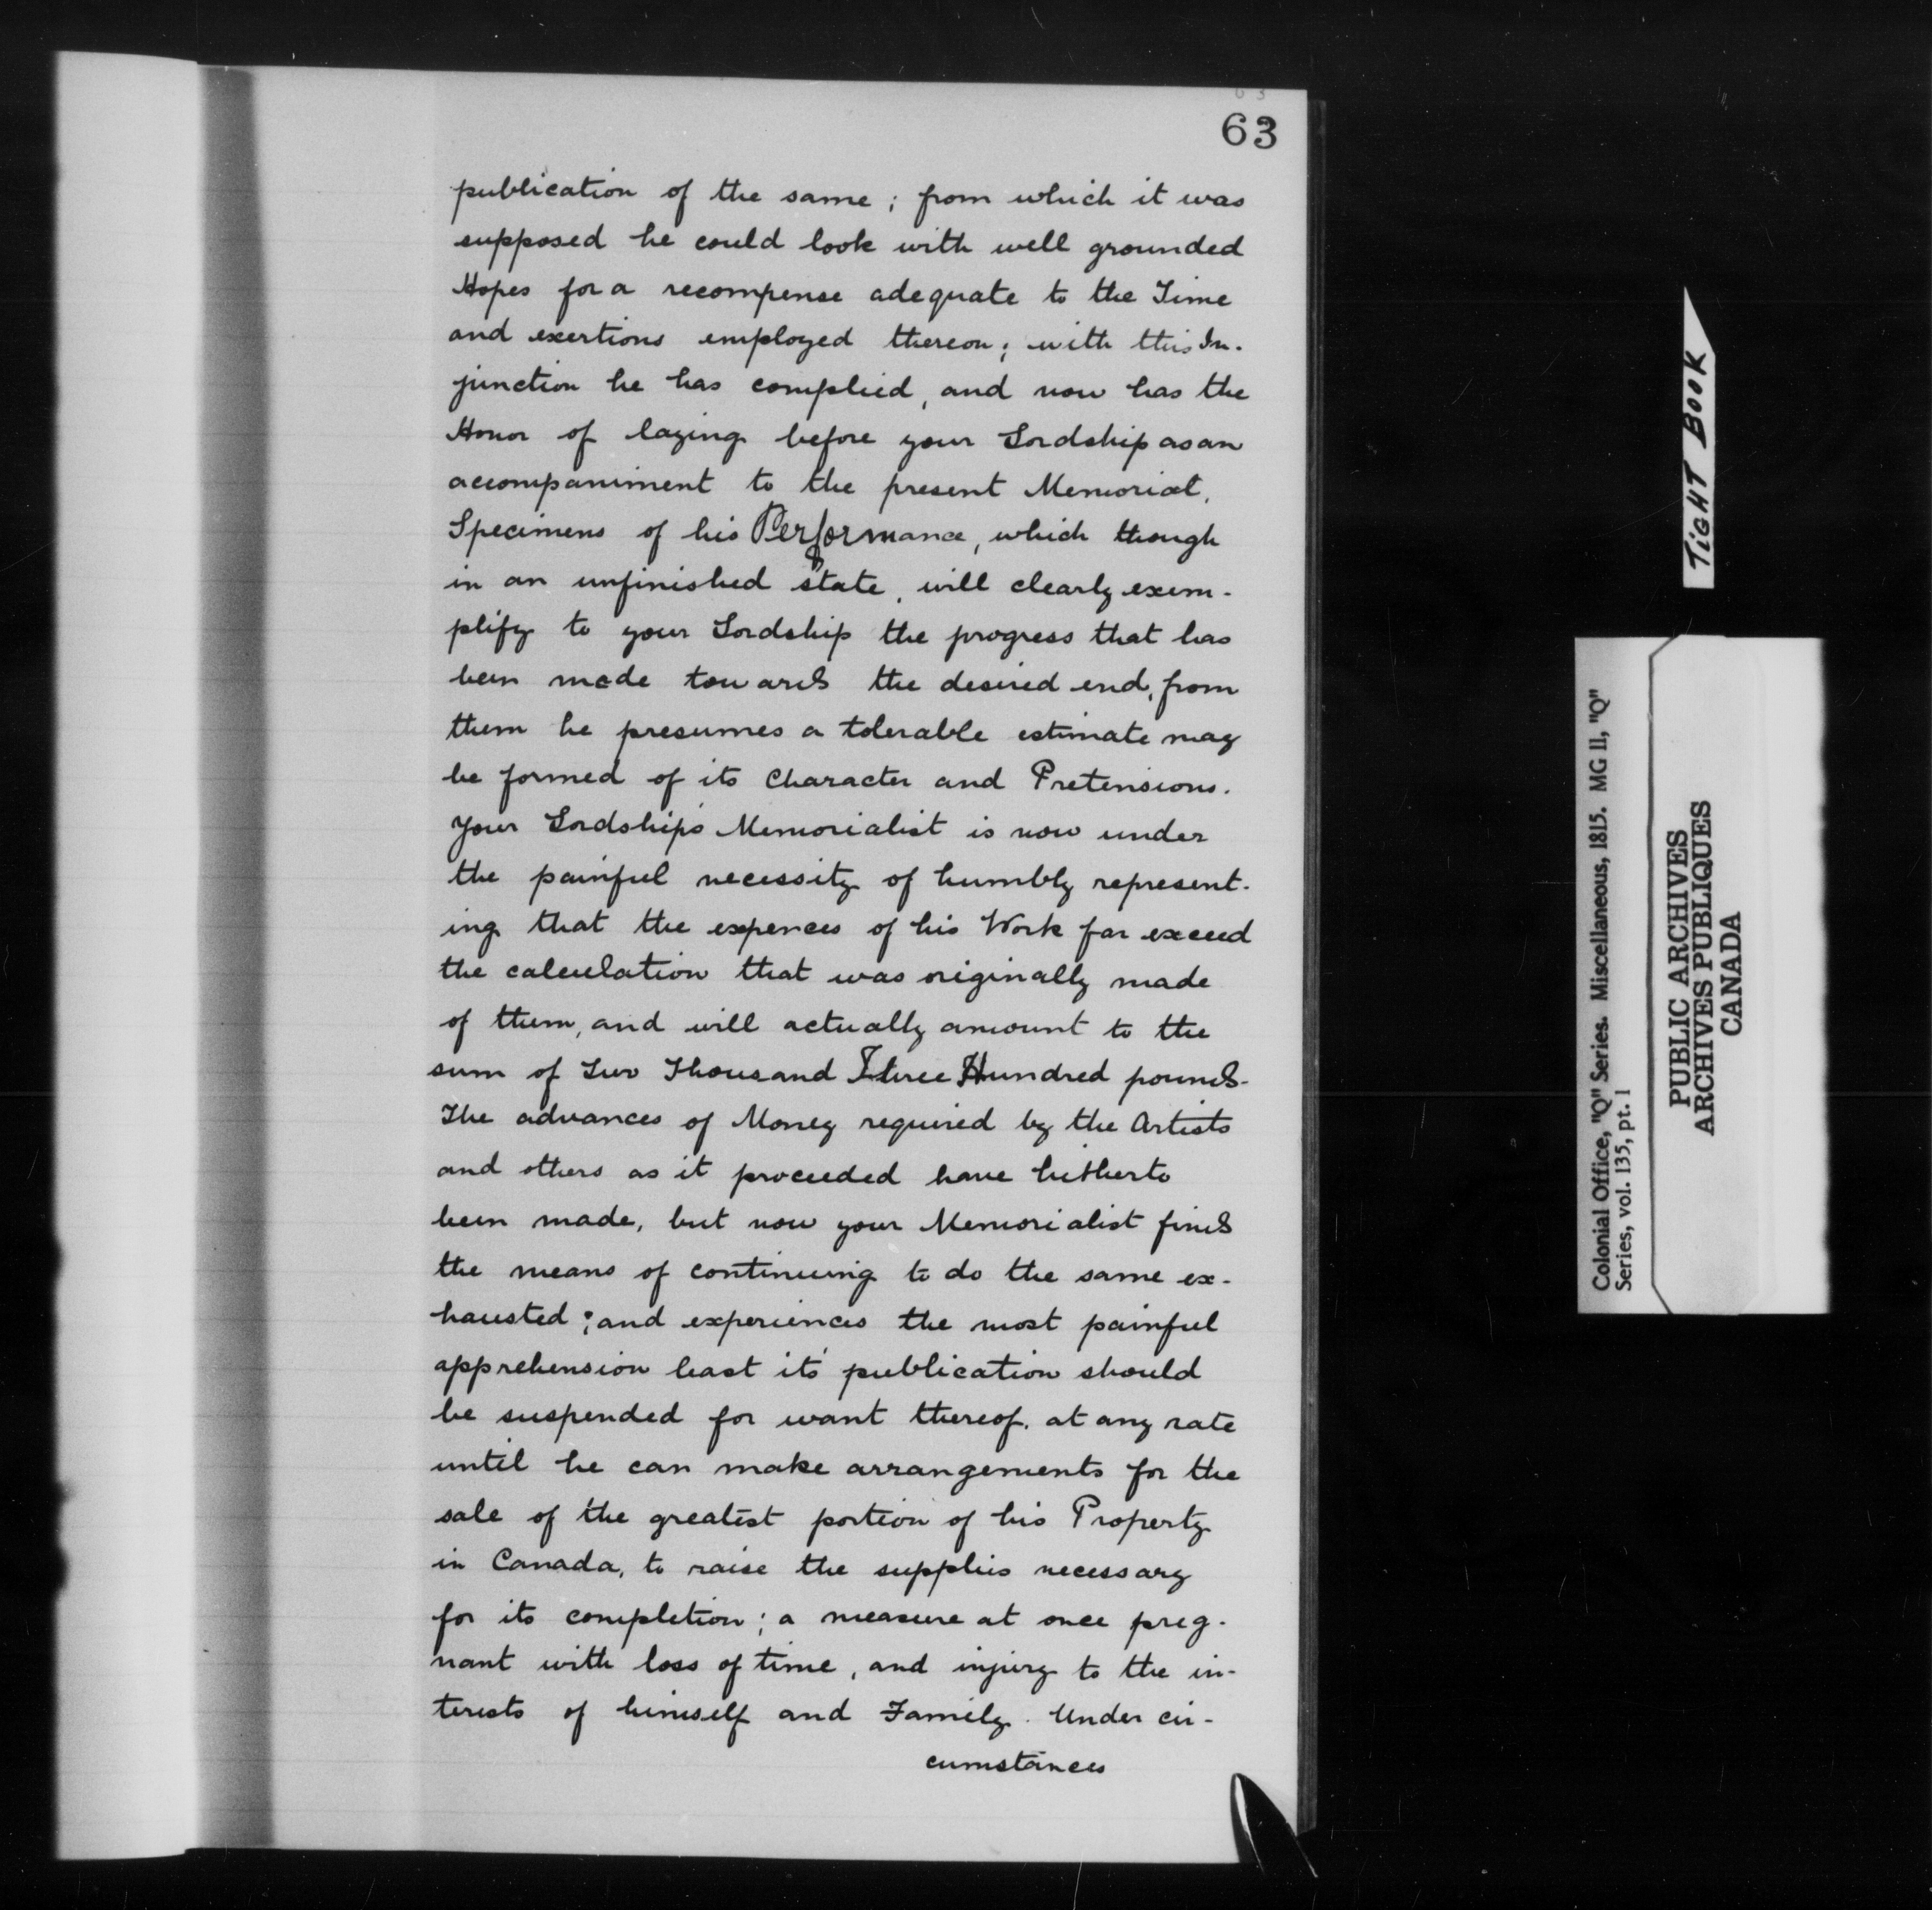 63
publication of the same; from which it was
supposed he could look with well grounded
Hopes for a recompense adequate to the Time
and exertions employed thereon; with this In-
junction he has complied, and now has the
Honor of laying before your Lordship as an
accompaniment to the present Memorial,
Specimens of his Performance, which though
in an unfinished state, will clearly exem-
plify to your Lordship the progress that has
been made towards the desired end, from
them he presumes a tolerable estimate may
be formed of its Character and Pretensions.
Your Lordship's Memorialist is now under
the painful necessity of humbly represent-
ing that the expences of his Work far exceed
the calculation that was originally made
of them, and will actually amount to the
sum of Two Thousand Three Hundred pounds.
The advances of Money required by the Artists
and others as it proceeded have hitherto
been made, but now your Memorialist finds
the means of continuing to do the same ex-
hausted; and experiences the most painful
apprehension least it's publication should
be suspended for want thereof, at any rate
until he can make arrangements for the
sale of the greatest portion of his Property
in Canada, to raise the supplies necessary
for its completion; a measure at once preg-
nant with loss of time, and injury to the in-
terests of himself and Family. Under cir-
cumstances
TIGHT BOOK
Colonial Office, "Q" Series. Miscellaneous, 1815. MG 11, "Q"
Series, vol. 135, pt. 1
PUBLIC ARCHIVES
ARCHIVES PUBLIQUES
CANADA